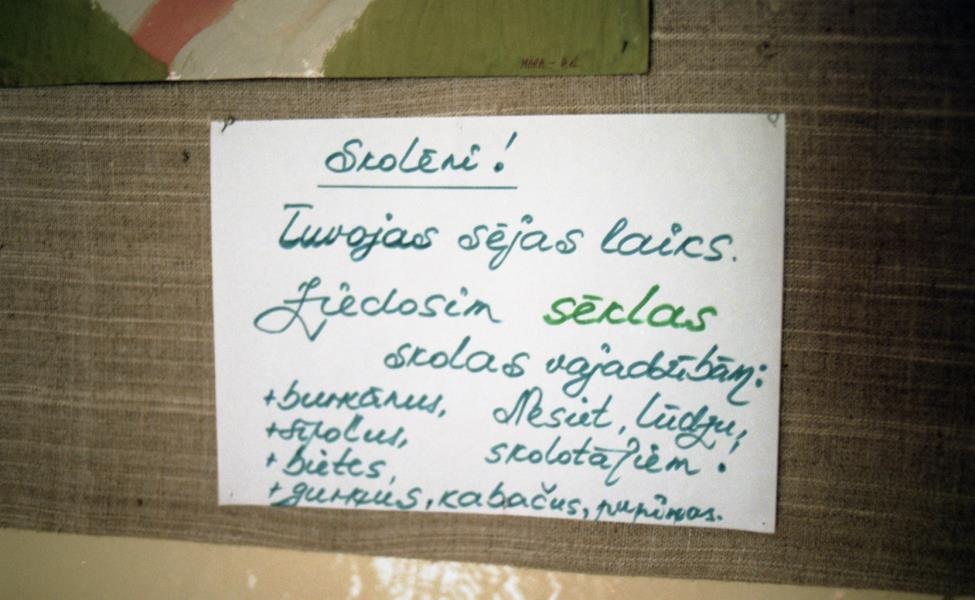 Skolēni!
Tuvojas sējas laiks.
Ziedosim sēklas
skolas vajadzībām:
+burkānus,
+sīpolus,
+bietes,
+gurķus, kabačus, pupiņas.
Nesiet, lūdzu,
skolotājiem!